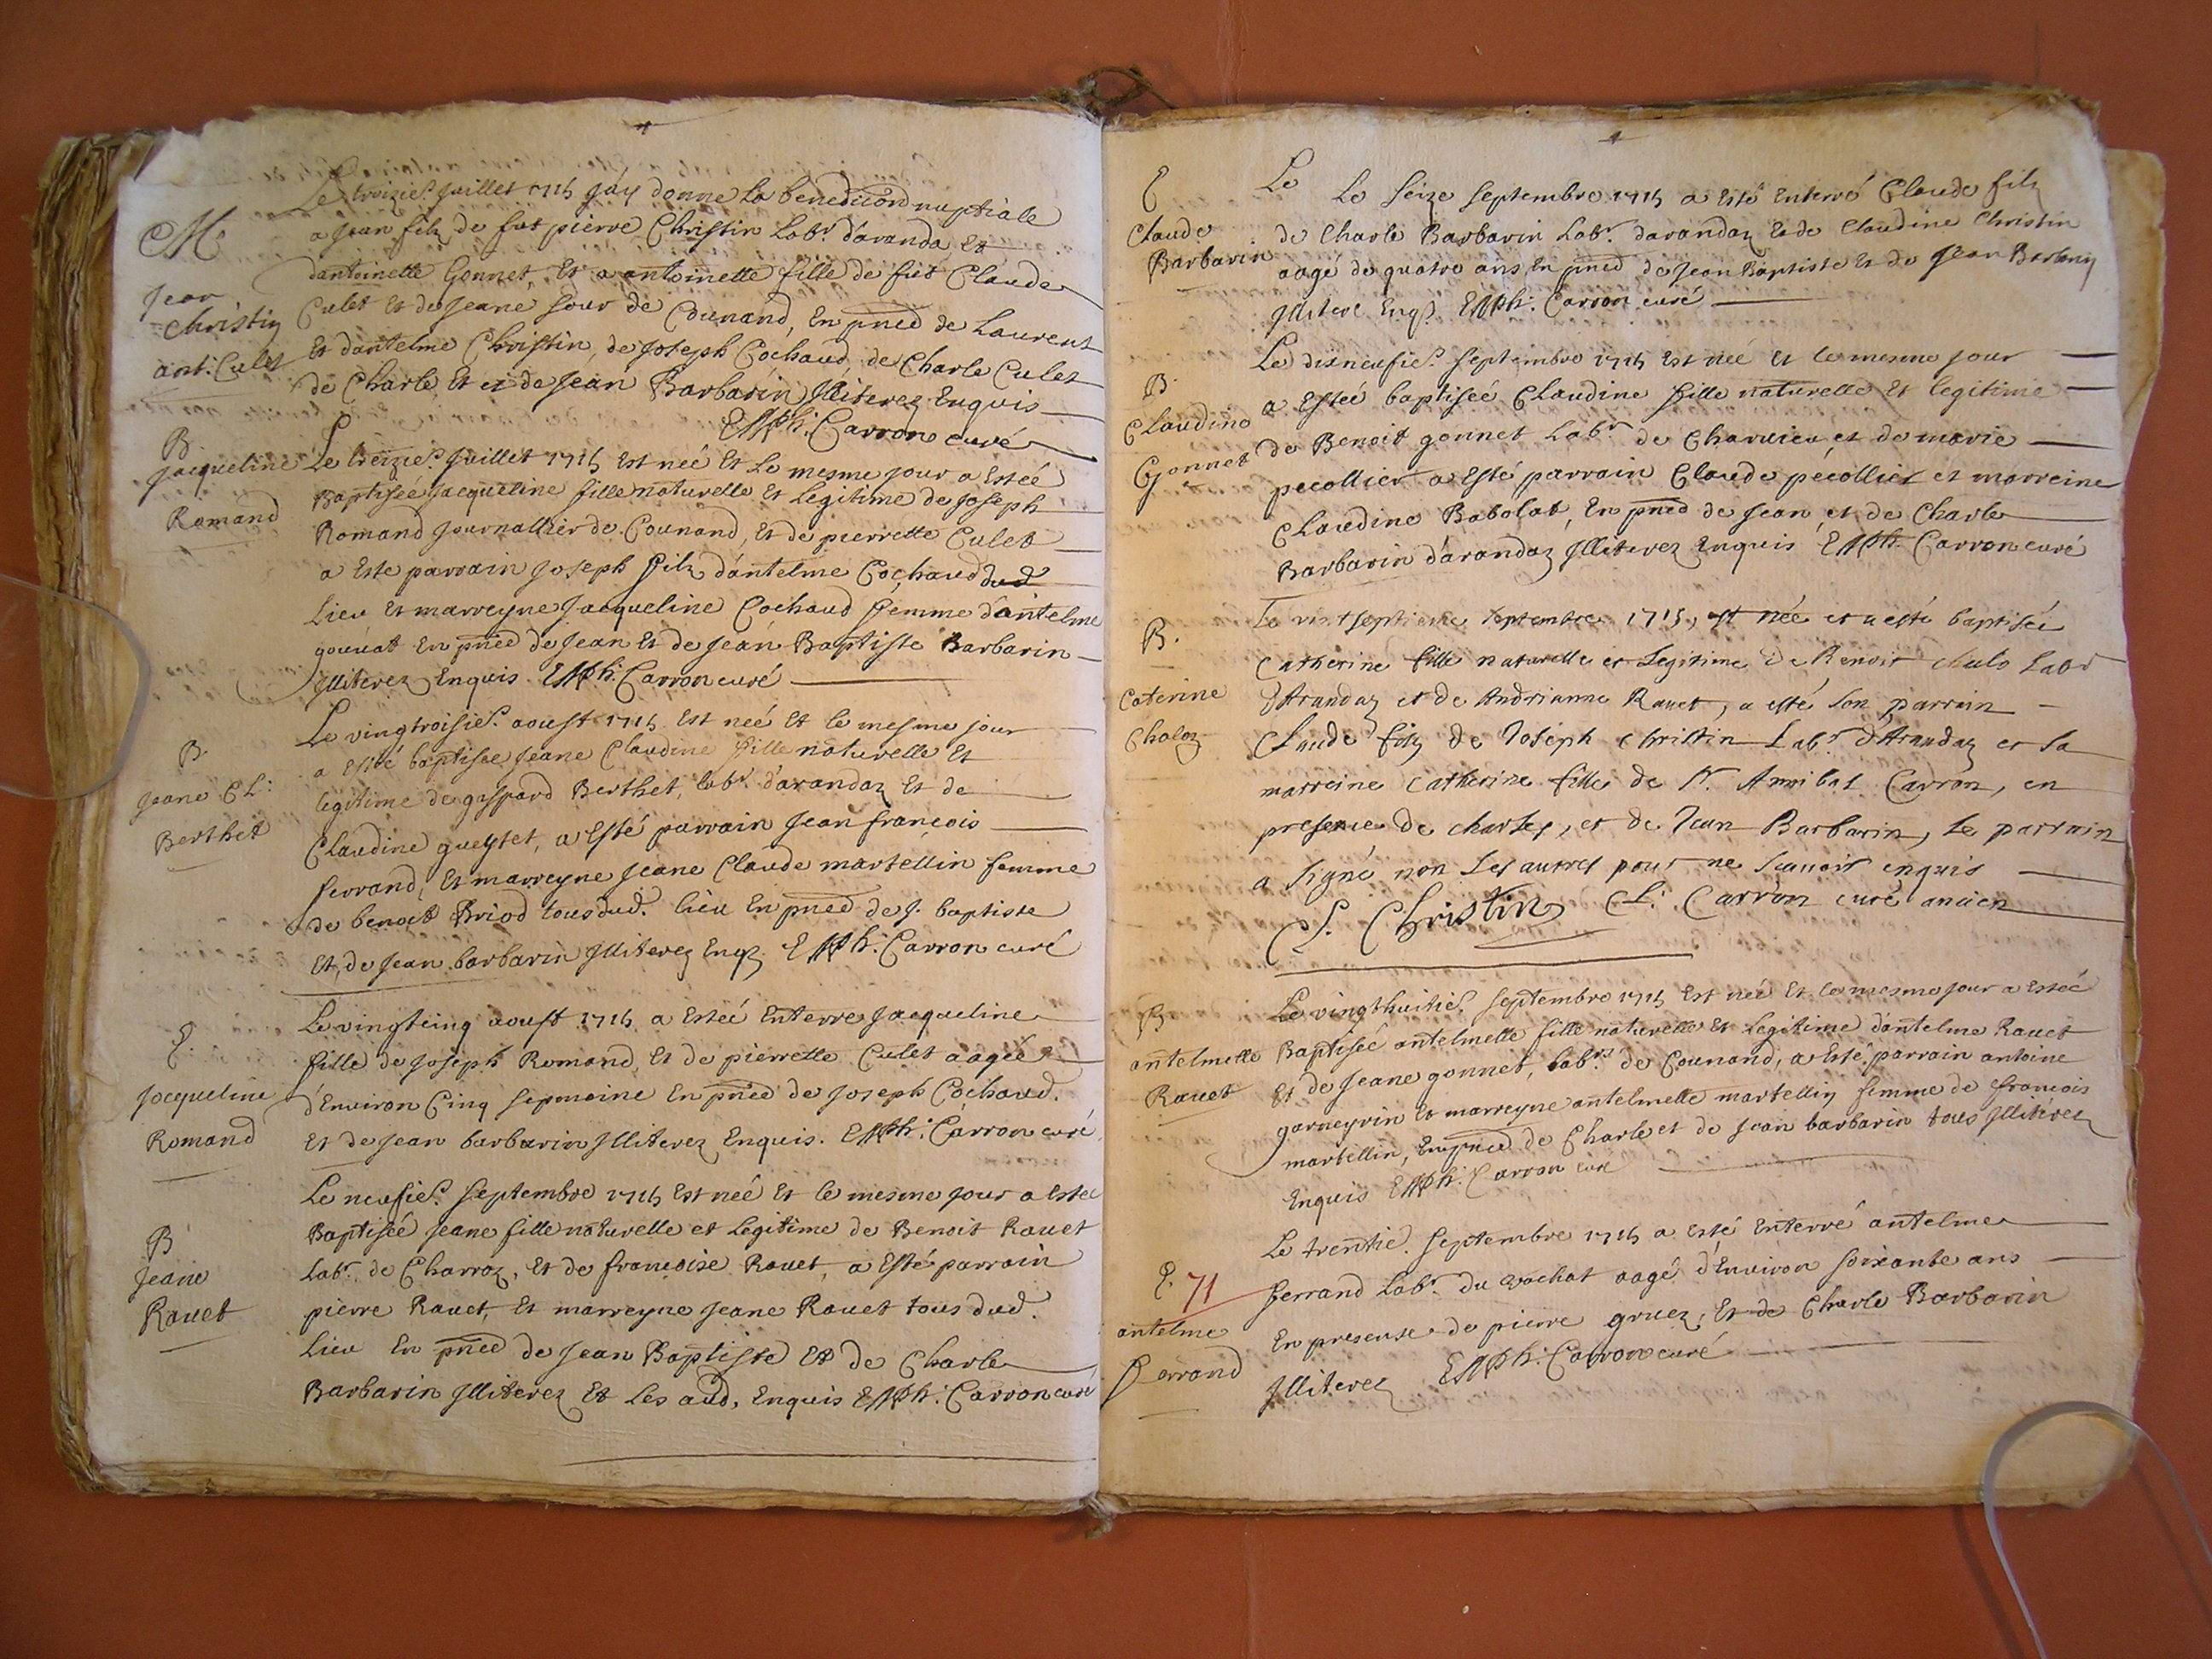 Le troizie. Juillet 1715 Jáy donne la benediction nuptiale
M.
a Jean filz de fut pierre Christin Labr. d'aranda Et
dantoinette Gonnet, Et a antoinette fille de fut Claude
Jean
Christin
ant. Culet
Culet Et de Jeane sour de Counand, En pnce de Laurent
Et dantelme Christin, de Joseph Cochaud, de Charle Culet
de Charle Et et de Jean Barbarin Illiterez Enquis
Carron curé
B.
Jacqueline
Romand
Le treizie. Juillet 1715 Est neé Et Le mesme jour a Estéé
Baptiseé Jacqueline fille naturelle Et Legitime de Joseph
Romand Journallier de Counand, Et de pierrette Culet
a Este parrain Joseph filz d'antelme Cochaud dud
Lieu Et marreyne Jacqueline Cochaud femme d'antelme
gouuat En pnce de Jean Et de Jean Baptiste Barbarin
Illiterez Enquis Carron curé
B.
Jeane Cl:
Berthet
Le vingtroisie. aoust 1715 Est neé Et le mesme jour
a Esté baptisee Jeane Claudine fille naturelle Et
legitime de gaspard Berthet, labr. d'arandaz Et de
Claudine gueytet, a Esté parrain Jean françois
ferrand, Et marreyne Jeane Claude martellin femme
de benoit Briod tous dud. lieu En pnce de J. baptiste
Et, de Jean barbarin Illiterez Enqz. Carron curé
E.
Jacqueline
Romand
Le vingtcinq aoust 1715 a Esteé Enterre Jacqueline
fille de Joseph Romand, Et de pierrette Culet aagéé
d'Enuiron Cinq sepmaine En pnce de Joseph Cochaud.
Et de Jean barbarin Illiterez Enquis. Carron curé
B
Jeane
Rauet
Le neufie. Septembre 1715 Est neé Et le mesme jour a Esteé
Baptiseé Jeane fille naturelle et Legitime de Benoit Rauet
Labr. de Charroz, Et de françoise Rauet, a Esté parrain
pierre Rauet, Et marreyne Jeane Rauet tous dud.
Lieu En pnce de Jean Baptiste Et de Charle
Barbarin Illiterez Et Les aud. Enquis Carron curé
E
Claude
Barbarin
Le Le Seize Septembre 1715 a Esté Enterré Claude filz
de Charle Barbarin Labr. darandaz Et de Claudine Christin
aagé de quatre ans En pnce de Jean Baptiste Et de Jean Barbarin
Illitere Enqs. Carron curé
B.
Claudine
Gonnet
Le disneufie. Septembre 1715 Est neé Et le mesme jour
a Esteé baptiseé Claudine fille naturelle Et legitime
de Benoit gonnet Labr. de Charuieu et de marie
pecollier a Esté parrain Claude pécollier et marreine
Claudine Babolat, En pnce de Jean et de Charle
Barbarin d'arandaz Illiterez Enquis Carron curé
B.
Caterine
Choloz
Le vintseptieme septembre 1715, est née et a esté baptisée
Catherine fille naturelle et Legitime de Benoit Labr
d'Arandaz et de Andrianne Rauet, a esté son parrain
Claude filz de Joseph Christin Labr. d'Arandaz et sa
marreine Catherine fille de Sr. Annibal Carron, en
presence de charles, et de Jean Barbarin, le parrain
a signé non Les autres pour ne scauoir enquis
C. Christin Cl: Carron curé ancien
B
antelmette
Rauet
Le vingthuitie. Septembre 1715 Est neé Et le mesme jour a Esteé
Baptiseé antelmette fille naturelle Et Legitime d'antelme Rauet
Et de Jeane gonnet, labrs. de Counand, a Esté parrain antoine
garneyrin Et marreyne antelmette martellin femme de francois
martellin, En pnce de Charle et de Jean barbarin tous Illitérez
Enquis Carron cure
E. 71
antelme
ferrand
Le trentie. Septembre 1715 a Esté Enterré antelme
ferrand Labr. du aagé d'Enuiron soixante ans
En presense de pierre gruez, Et de Charle Barbarin
Illiterez Carron curé